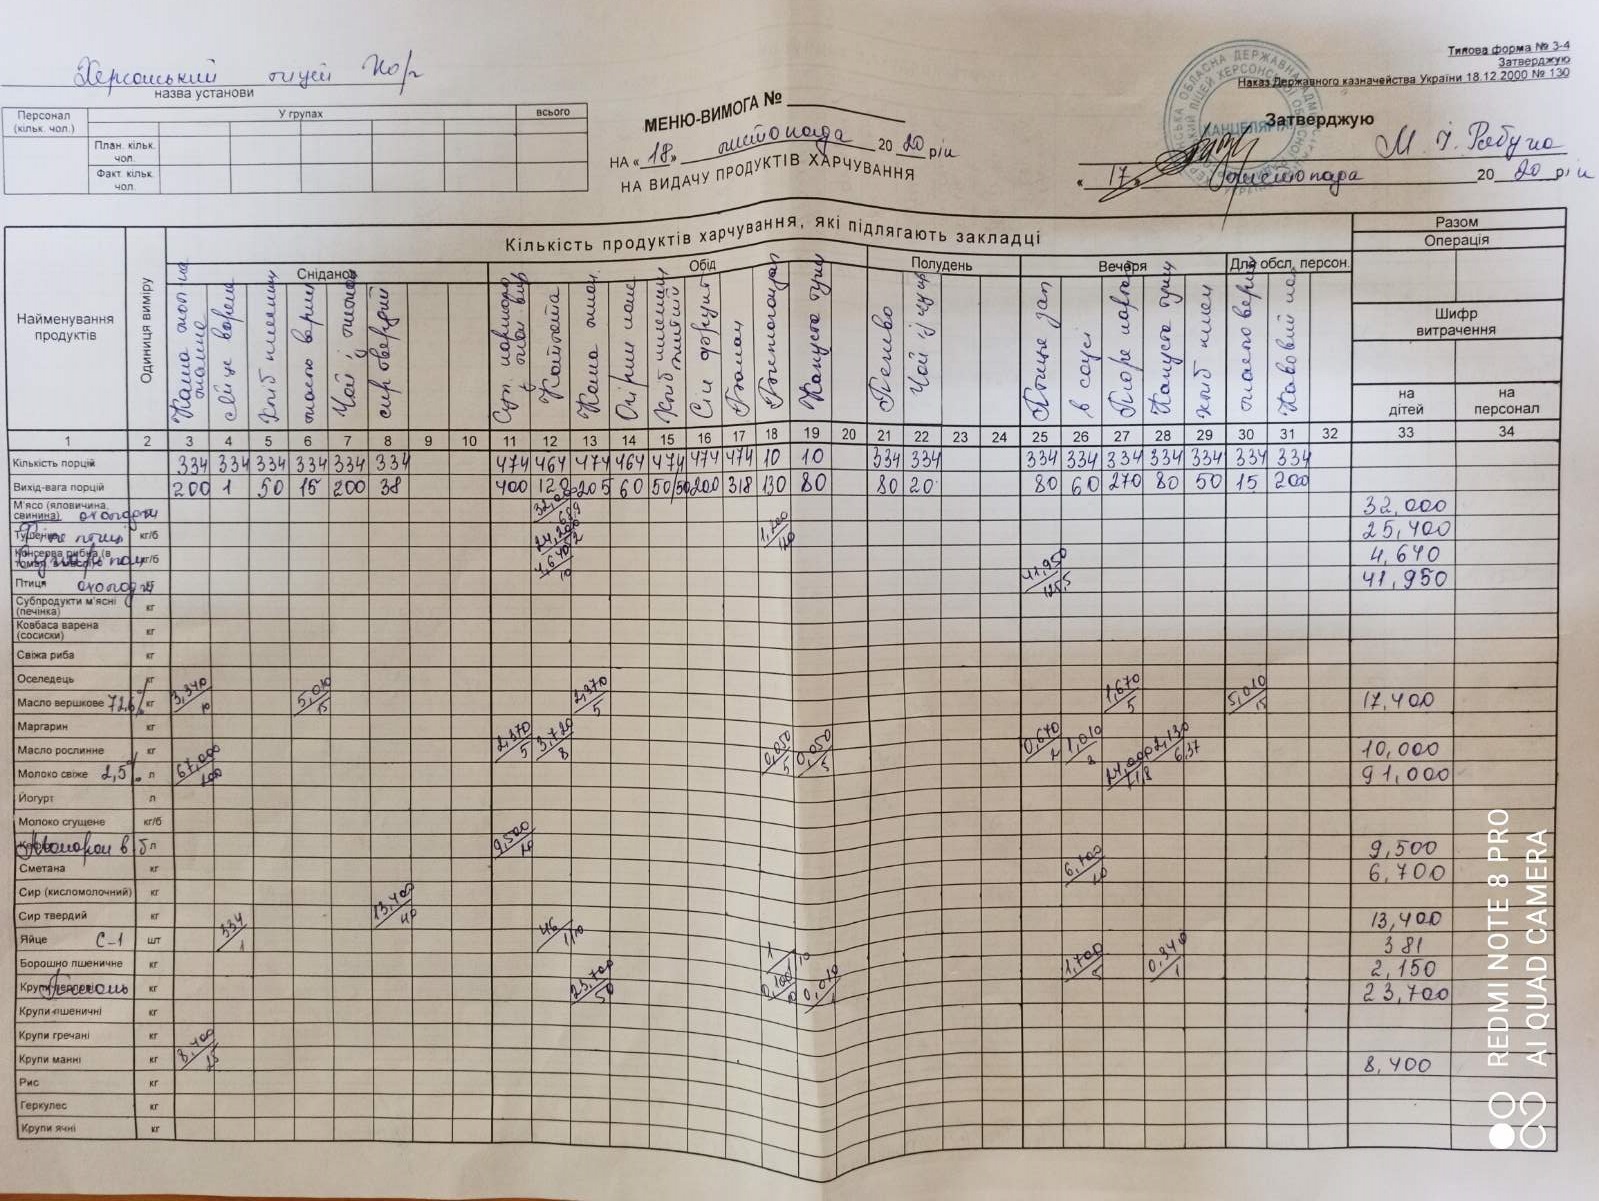 Типова форма № З-4
Затверджую
Наказ Державного казначейства України 18.12.2000 № 130
Херсонський ліцей
назва установи
Персонал (кільк. чол.)
У групах
всього
План. кільк. чол.
Факт. кільк. чол.
МЕНЮ-ВИМОГА №
НА «18» листопада 2020 рік
НА ВИДАЧУ ПРОДУКТІВ ХАРЧУВАННЯ
Затверджую
«17» листопада 2020 рік
КАНЦЕЛЯРІЯ
Найменування продуктів
Одиниця виміру
Кількість продуктів харчування, які підлягають закладці
Разом
Операція
Сніданок
Обід
Полудень
Вечеря
Для обсл. персон.
Шифр витрачення
на дітей
на персонал
Каша молочна манна
Яйце варене
Хліб пшенич
масло верш
Чай з лимон
сир твердий
Котлета
Каша
Огірки соле
Хліб пшенич житній
Сік фрукт
Банан
Капуста туш
Печиво
Чай із цукр
Птиця зап
в соусі
Пюре картоп
Капуста туш
хліб пшен
масло верш
1 2 3 4 5 6 7 8 9 10 11 12 13 14 15 16 17 18 19 20 21 22 23 24 25 26 27 28 29 30 31 32 33 34
Кількість порцій 334 334 334 334 334 334 474 464 474 464 474 474 474 10 10 334 334 334 334 334 334 334 334 334
Вихід-вага порцій 200 1 50 15 200 38 400 120 205 60 50/50 200 318 130 80 80 20 80 60 270 80 50 15 200
М'ясо (яловичина, свинина) охолодж 32,000
Філе птиці кг/б 25,400
кг/б 4,640
Птиця охолодж 41,950 41,950
Субпродукти м'ясні (печінка) кг
Ковбаса варена (сосиски) кг
Свіжа риба кг
Оселедець кг
Масло вершкове 72,6% кг 3,340/10 5,010/15 2,370/5 1,670/5 5,010/15 17,400
Маргарин кг
Масло рослинне кг 2,370/5 3,720/8 0,050/5 0,050/5 0,670/2 1,010/3 2,130/6,37 10,000
Молоко свіже 2,5% л 67,000/200 24,000/71,8 91,000
Йогурт л
Молоко сгущене кг/б
Макарон в б л 9,500/20 9,500
Сметана кг 6,700/20 6,700
Сир (кисломолочний) кг
Сир твердий кг 13,400/40 13,400
Яйце С-1 шт 334/1 46/1/10 1/10 381
Борошно пшеничне кг 0,100/10 0,010/1 1,700/5 0,340/1 2,150
кг 23,700/50 23,700
Крупи пшеничні кг
Крупи гречані кг
Крупи манні кг 8,400/25 8,400
Рис кг
Геркулес кг
Крупи ячні кг
REDMI NOTE 8 PRO
AI QUAD CAMERA